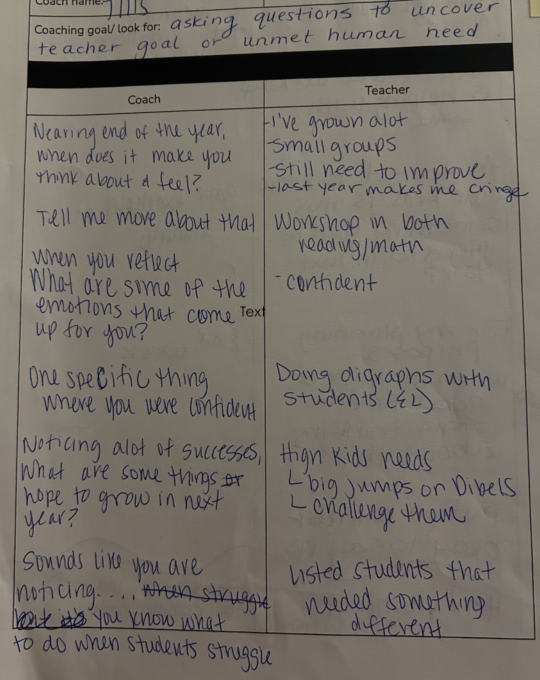 Coach name:
Coaching goal/look for: asking questions to uncover
teacher goal or unmet human need
Coach
Teacher
Nearing end of the year,
when does it make you
think about & feel?
-I've grown alot
-Small groups
-Still need to improve
-last year makes me cringe
Tell me more about that
Workshop in both
reading/math
when you reflect
What are some of the
emotions that come
up for you?
Text
- confident
One specific thing
where you were confident
Doing digraphs with
students (EL)
Noticing alot of successes,
What are some things or
hope to grow in next
year?
High kids needs
big jumps on Dibels
challenge them
Sounds like you are
noticing.... when struggle
but you know what
to do when students struggle
Listed students that
needed something
different